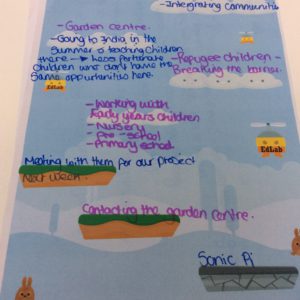 - Intergrating Communities
- Garden centre.
- Going to India in the
Summer & teaching children
there - Less fortunate
children who don't have the
same oppurtunities here.
- Refugee children -
Breaking the barrier
- Working with
Early years children
- Nursery
- Pre-school
- Primary school
EdLab
EdLab
Meeting with them for our project
Next week.
Contacting the garden centre.
Sonic Pi